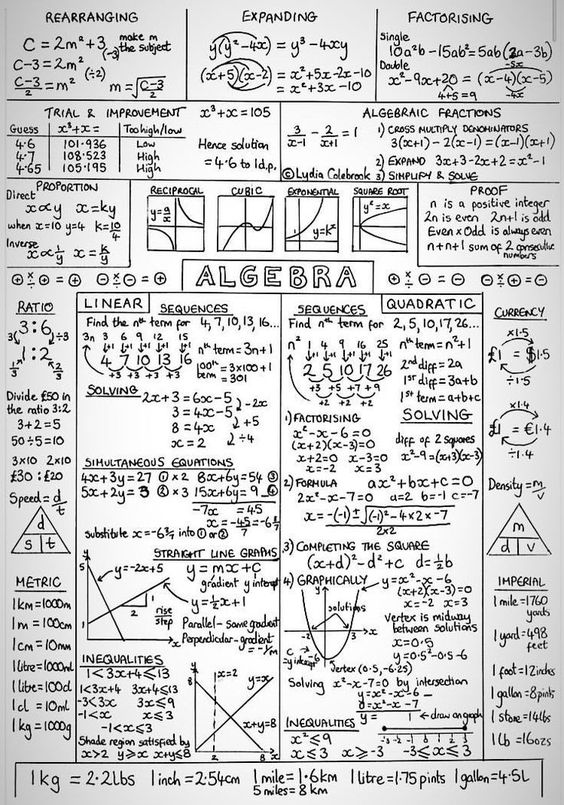 REARRANGING
C = 2m² + 3
make m
the subject
(-3)
C-3 = 2m²
(÷2)
C-3/2 = m²
m = √(C-3/2)
EXPANDING
y(y² - 4x) = y³ - 4xy
(x+5)(x-2) = x² + 5x - 2x - 10
= x² + 3x - 10
FACTORISING
Single
10a²b - 15ab² = 5ab(2a - 3b)
Double
-5x
x² - 9x + 20 = (x-4)(x-5)
4+5=9
-4x
TRIAL & IMPROVEMENT
x³ + x = 105
Guess x³+x= Too high/low
4.6 101.936 Low
4.7 108.523 High
4.65 105.195 High
Hence solution
= 4.6 to 1d.p.
ALGEBRAIC FRACTIONS
3/x-1 - 2/x+1 = 1
1) CROSS MULTIPLY DENOMINATORS
3(x+1) - 2(x-1) = (x-1)(x+1)
2) EXPAND 3x+3-2x+2 = x²-1
3) SIMPLIFY & SOLVE
© Lydia Colebrook
PROPORTION
Direct
x ∝ y x = ky
when x=10 y=4 k=10/4
Inverse
x ∝ 1/y x = k/y
RECIPROCAL
y = a/x
CUBIC
EXPONENTIAL
y=kˣ
SQUARE ROOT
y²=x
PROOF
n is a positive integer
2n is even 2n+1 is odd
Even x Odd is always even
n+n+1 sum of 2 consecutive
numbers
ALGEBRA
RATIO
3:6
3 ÷3
1:2
Divide £50 in
the ratio 3:2
3+2=5
50÷5=10
3x10 2x10
£30 : £20
Speed = d/t
d
s t
METRIC
1km = 1000m
1m = 100cm
1cm = 10mm
1litre = 1000ml
1litre = 100cl
1cl = 10ml
1kg = 1000g
LINEAR
SEQUENCES
Find the nth term for 4, 7, 10, 13, 16...
3n 3 6 9 12 15
+1 +1 +1 +1 +1
4 7 10 13 16
+3 +3 +3 +3
nth term = 3n+1
100th term = 3x100+1
= 301
SOLVING
2x+3 = 6x-5
-2x
3 = 4x-5
+5
8 = 4x
÷4
x = 2
SIMULTANEOUS EQUATIONS
4x+3y=27 ① x2 8x+6y=54 ③
5x+2y=3 ② x3 15x+6y=9 ④
-7x = 45
x = -45/7 = -6 3/7
substitute x=-6 3/7 into ① or ②
STRAIGHT LINE GRAPHS
y
5
y=-2x+5
1
x
y = mx + c
gradient y intercept
2
1
y=½x+1
rise
step
Parallel - same gradient
Perpendicular - gradient
= -1/m
INEQUALITIES
1 < 3x+4 ≤ 13
1<3x+4 3x+4≤13
-3<3x 3x≤9
-1<x x≤3
-1<x≤3
Shade region satisfied by
x>2 y≥x x+y≤8
8
x=2
y=x
x+y=8
2
8 x
SEQUENCES
QUADRATIC
Find nth term for 2, 5, 10, 17, 26...
n² 1 4 9 16 25
+1 +1 +1 +1 +1
2 5 10 17 26
+3 +5 +7 +9
+2 +2 +2
nth term = n²+1
2nd diff = 2a
1st diff = 3a+b
1st term = a+b+c
SOLVING
1) FACTORISING
x²-x-6=0
(x+2)(x-3)=0
x+2=0 x-3=0
x=-2 x=3
diff of 2 squares
x²-9=(x+3)(x-3)
2) FORMULA ax²+bx+c=0
2x²-x-7=0 a=2 b=-1 c=-7
x = -(-1) ± √(-1)²-4x2x-7
2x2
3) COMPLETING THE SQUARE
(x+d)²-d²+c d=½b
4) GRAPHICALLY
y=x²-x-6
(x+2)(x-3)=0
x=-2 x=3
y
solutions
-2
3
x
c
-y intercept
-6
Vertex (0.5, -6.25)
Vertex is midway
between solutions
x=0.5
y=0.5²-0.5-6
Solving x²-x-7=0 by intersection
y=x²-x-6
0=x²-x-7
y= 1
← draw on graph
INEQUALITIES
x²≤9
x≤3 x≥-3 -3≤x≤3
-3 -2 -1 0 1 2 3
CURRENCY
x1.5
£1 = $1.5
÷1.5
x1.4
£1 = €1.4
÷1.4
Density = m/v
m
d v
IMPERIAL
1 mile = 1760
yards
1 foot = 12 inches
1 gallon = 8 pints
1 stone = 14lbs
1lb = 16ozs
1kg = 2.2lbs 1 inch = 2.54cm 1 mile = 1.6km 1 litre = 1.75 pints 1 gallon = 4.5L
5 miles = 8 km